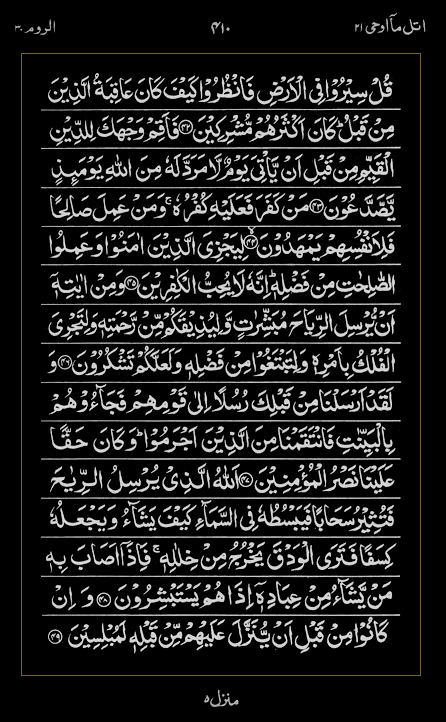 اتل مآ اوحی ۲۱ ۴۱۰ الروم ۳۰
قُلْ سِيْرُوْا فِى الْاَرْضِ فَانْظُرُوْا كَيْفَ كَانَ عَاقِبَةُ الَّذِيْنَ
مِنْ قَبْلُ ؕ كَانَ اَكْثَرُهُمْ مُّشْرِكِيْنَ ﴿۴۲﴾ فَاَقِمْ وَجْهَكَ لِلدِّيْنِ
الْقَيِّمِ مِنْ قَبْلِ اَنْ يَّاْتِىَ يَوْمٌ لَّا مَرَدَّ لَهٗ مِنَ اللّٰهِ يَوْمَئِذٍ
يَّصَّدَّعُوْنَ ﴿۴۳﴾ مَنْ كَفَرَ فَعَلَيْهِ كُفْرُهٗ ۚ وَمَنْ عَمِلَ صَالِحًا
فَلِاَنْفُسِهِمْ يَمْهَدُوْنَ ﴿۴۴﴾ لِيَجْزِىَ الَّذِيْنَ اٰمَنُوْا وَعَمِلُوا
الصّٰلِحٰتِ مِنْ فَضْلِهٖ ؕ اِنَّهٗ لَا يُحِبُّ الْكٰفِرِيْنَ ﴿۴۵﴾ وَمِنْ اٰيٰتِهٖۤ
اَنْ يُّرْسِلَ الرِّيَاحَ مُبَشِّرٰتٍ وَّلِيُذِيْقَكُمْ مِّنْ رَّحْمَتِهٖ وَلِتَجْرِىَ
الْفُلْكُ بِاَمْرِهٖ وَلِتَبْتَغُوْا مِنْ فَضْلِهٖ وَلَعَلَّكُمْ تَشْكُرُوْنَ ﴿۴۶﴾ وَ
لَقَدْ اَرْسَلْنَا مِنْ قَبْلِكَ رُسُلًا اِلٰى قَوْمِهِمْ فَجَآءُوْهُمْ
بِالْبَيِّنٰتِ فَانْتَقَمْنَا مِنَ الَّذِيْنَ اَجْرَمُوْا ؕ وَكَانَ حَقًّا
عَلَيْنَا نَصْرُ الْمُؤْمِنِيْنَ ﴿۴۷﴾ اَللّٰهُ الَّذِىْ يُرْسِلُ الرِّيٰحَ
فَتُثِيْرُ سَحَابًا فَيَبْسُطُهٗ فِى السَّمَآءِ كَيْفَ يَشَآءُ وَيَجْعَلُهٗ
كِسَفًا فَتَرَى الْوَدْقَ يَخْرُجُ مِنْ خِلٰلِهٖ ۚ فَاِذَاۤ اَصَابَ بِهٖ
مَنْ يَّشَآءُ مِنْ عِبَادِهٖۤ اِذَا هُمْ يَسْتَبْشِرُوْنَ ﴿۴۸﴾ وَ اِنْ
كَانُوْا مِنْ قَبْلِ اَنْ يُّنَزَّلَ عَلَيْهِمْ مِّنْ قَبْلِهٖ لَمُبْلِسِيْنَ ﴿۴۹﴾
منزل ۵